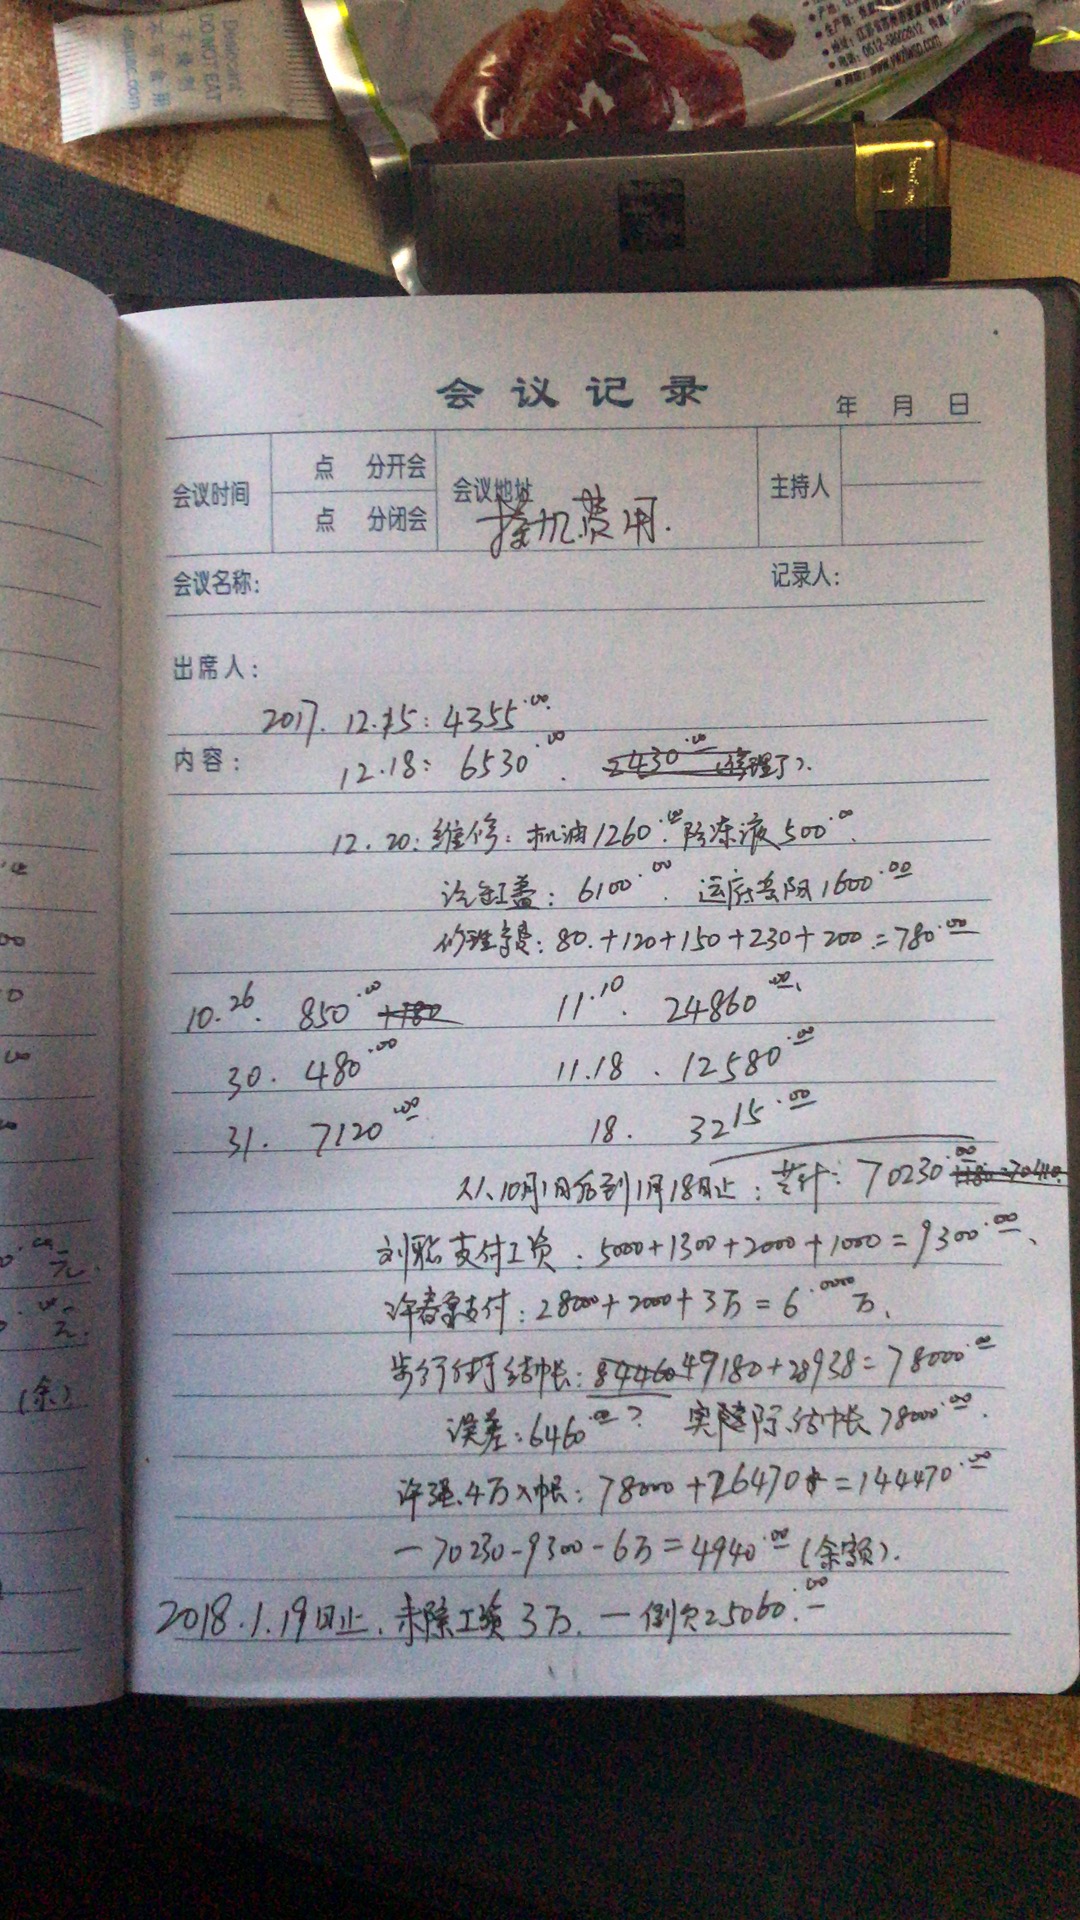 Desiccant
干燥剂
DO NOT EAT
不可食用
会议记录
年 月 日
会议时间 点 分开会 会议地址 主持人
点 分闭会
费用.
会议名称: 记录人:
出席人:
2017. 12.15: 4355.00
内容:
12.18: 6530.00 2430.00 修理了).
12.20: 维修: 机油1260.00 防冻液500.00
汽缸盖: 6100.00 运 岳阳1600.00
修理费: 80.+120+150+230+200=780.00
10.26. 850.00 +180 11.10. 24860.00
30. 480.00 11.18. 12580.00
31. 7120.00 18. 3215.00
从10月1日后到1月18日止: 共计: 70230.00 +180=70410
刘 支付工资: 5000+1300+2000+1000=9300.00
许春 支付: 28000+2000+3万=6.0000万.
步行 结帐: 84460 49180+28938=78000.00
误差: 6460.00? 实际结帐78000.00
许强4万入帐: 78000+26470+ =144470.00
-70230-9300-6万=4940.00 (余额).
2018.1.19日止. 未除工资3万. -倒欠25060.00
元.
元.
(余)